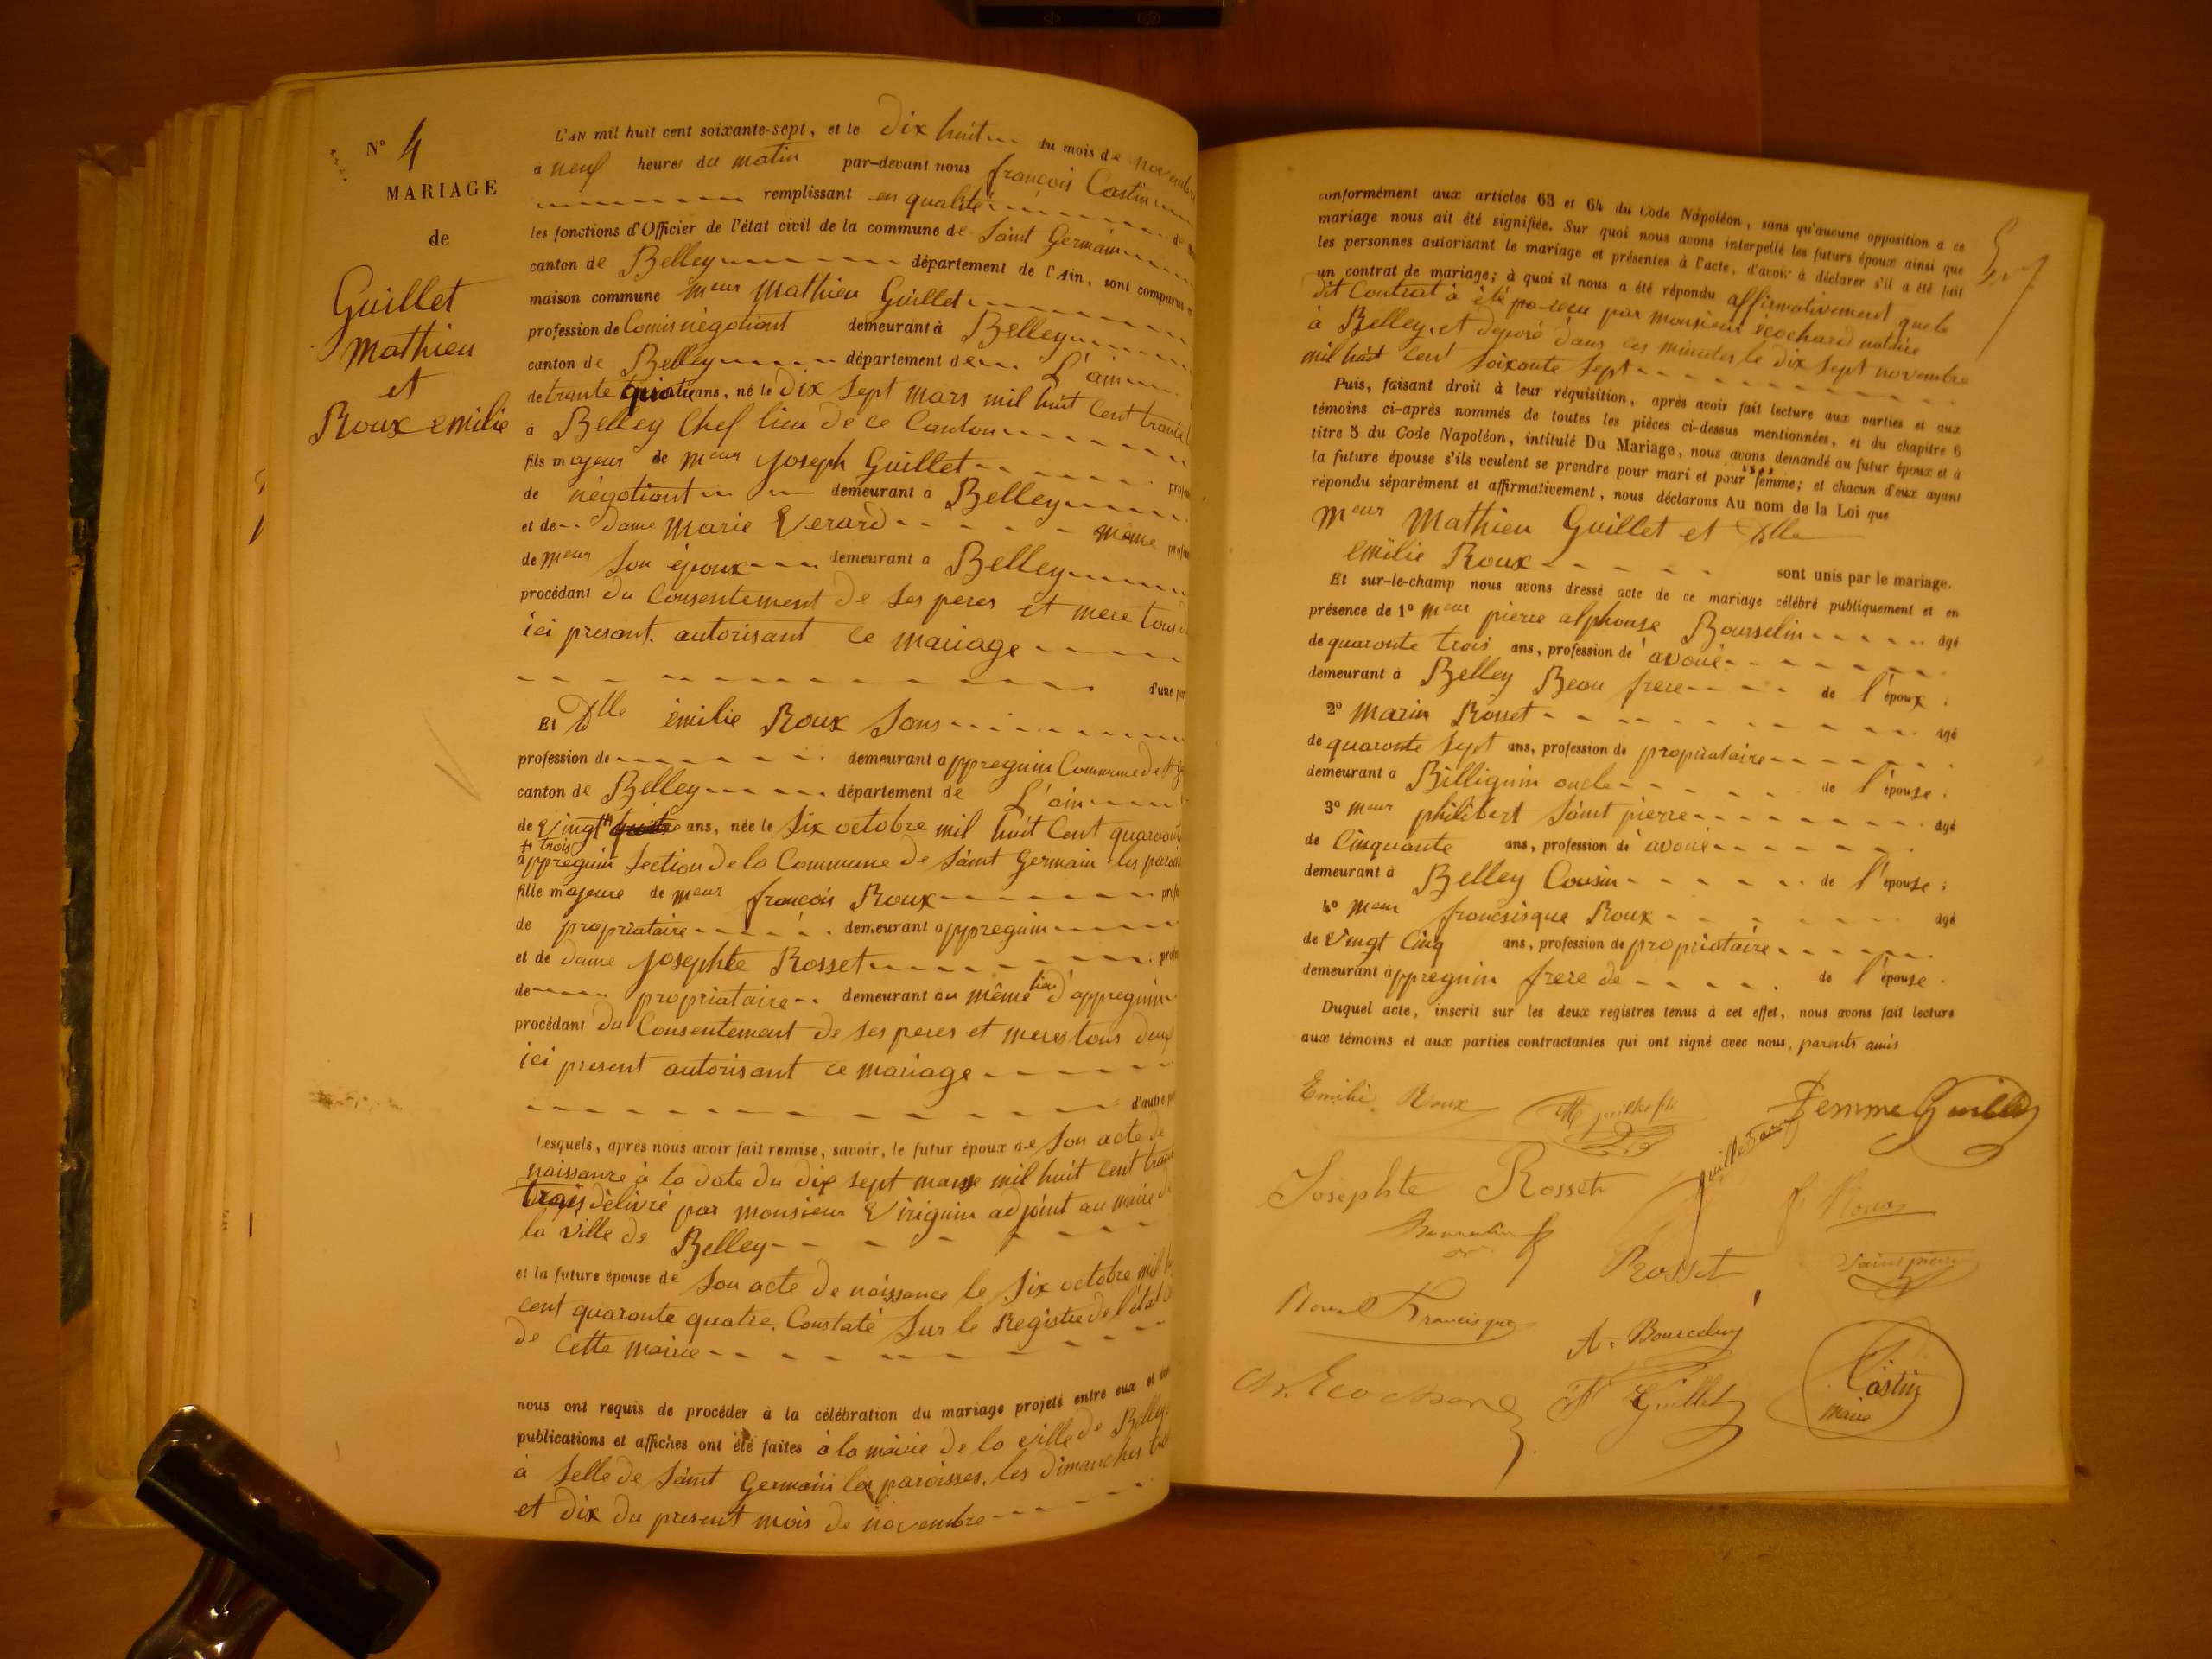 N° 4
MARIAGE
de
Guillet
Mathieu
et
Roux emilie
L'AN mil huit cent soixante-sept, et le dix huit du mois de novembre
à neuf heures du matin par-devant nous françois Castin
remplissant en qualité de
les fonctions d'Officier de l'état civil de la commune de Saint Germain
canton de Belley département de l'Ain, sont comparus
maison commune meur Mathieu Guillet
profession de Comis négotiant demeurant à Belley
canton de Belley département de L'ain
de trante ans, né le dix sept mars mil huit cent trante
à Belley Chef lieu de ce Canton
fils majeur de meur joseph Guillet
de négotiant demeurant à Belley
et de dame Marie Verard même
de meur son époux demeurant à Belley
procédant du Consentement de ses peres et mere tous
ici presant. autorisant ce mariage
d'une
Et Dlle émilie Roux Sans
profession de demeurant à ppregnin Commune de
canton de Belley département de L'ain
de vingt ans, née le six octobre mil huit cent
+ trois
à ppregnin Section de la Commune de Saint Germain les
fille majeure de meur françois Roux
de propriataire demeurant à ppregnin
et de dame josephte Rosset
de propriataire demeurant au même lieu d'appregnin
procédant du Consentement de ses peres et meres tous deux
ici present autorisant ce mariage
d'autre
Lesquels, après nous avoir fait remise, savoir, le futur époux de son acte de
naissance à la date du dix sept mars mil huit cent
trois délivré par monsieur Viriguin adjoint au maire de
la ville de Belley
et la future épouse de son acte de naissance le six octobre mil
cent quaronte quatre, Constaté sur le Registre de l'état
de cette mairie
nous ont requis de procéder à la célébration du mariage projeté entre eux et
publications et affiches ont été faites à la mairie de la ville de Belley
à selle de Saint Germain les paroisses, les dimanches
et dix du present mois de novembre
conformément aux articles 63 et 64 du Code Napoléon, sans qu'aucune opposition à ce
mariage nous ait été signifiée. Sur quoi nous avons interpellé les futurs époux ainsi que
les personnes autorisant le mariage et présentes à l'acte, d'avoir à déclarer s'il a été fait
un contrat de mariage; à quoi il nous a été répondu affirmativement que le
dit Contrat à été par monsieur ecochard notaire
à Belley, et déposé dans ces minutes le dix sept novembre
mil huit cent soixonte sept
Puis, faisant droit à leur réquisition, après avoir fait lecture aux parties et aux
témoins ci-après nommés de toutes les pièces ci-dessus mentionnées, et du chapitre 6
titre 5 du Code Napoléon, intitulé Du Mariage, nous avons demandé au futur époux et à
la future épouse s'ils veulent se prendre pour mari et pour femme; et chacun d'eux ayant
répondu séparément et affirmativement, nous déclarons Au nom de la Loi que
meur Mathieu Guillet et Dlle
emilie Roux sont unis par le mariage.
Et sur-le-champ nous avons dressé acte de ce mariage célébré publiquement et en
présence de 1° meur pierre alphonse Bourselin âgé
de quaronte trois ans, profession de avoué
demeurant à Belley Beau frere de l'époux
2° Marin Rosset âgé
de quaronte sept ans, profession de propriataire
demeurant à Billignin oncle de l'épouse
3° meur philibert Saint pierre âgé
de Cinquante ans, profession de avoué
demeurant à Belley Cousin de l'épouse
4° meur froncsisque Roux âgé
de vingt Cinq ans, profession de propriotaire
demeurant à ppregnin frere de de l'épouse
Duquel acte, inscrit sur les deux registres tenus à cet effet, nous avons fait lecture
aux témoins et aux parties contractantes qui ont signé avec nous, parents amis
Emilie Roux
Femme Guillet
Josephte Rosset
f Roux
Rosset
Saintpierre
Roux Francisque
A. Bourcelin
Guillet
Castin
maire